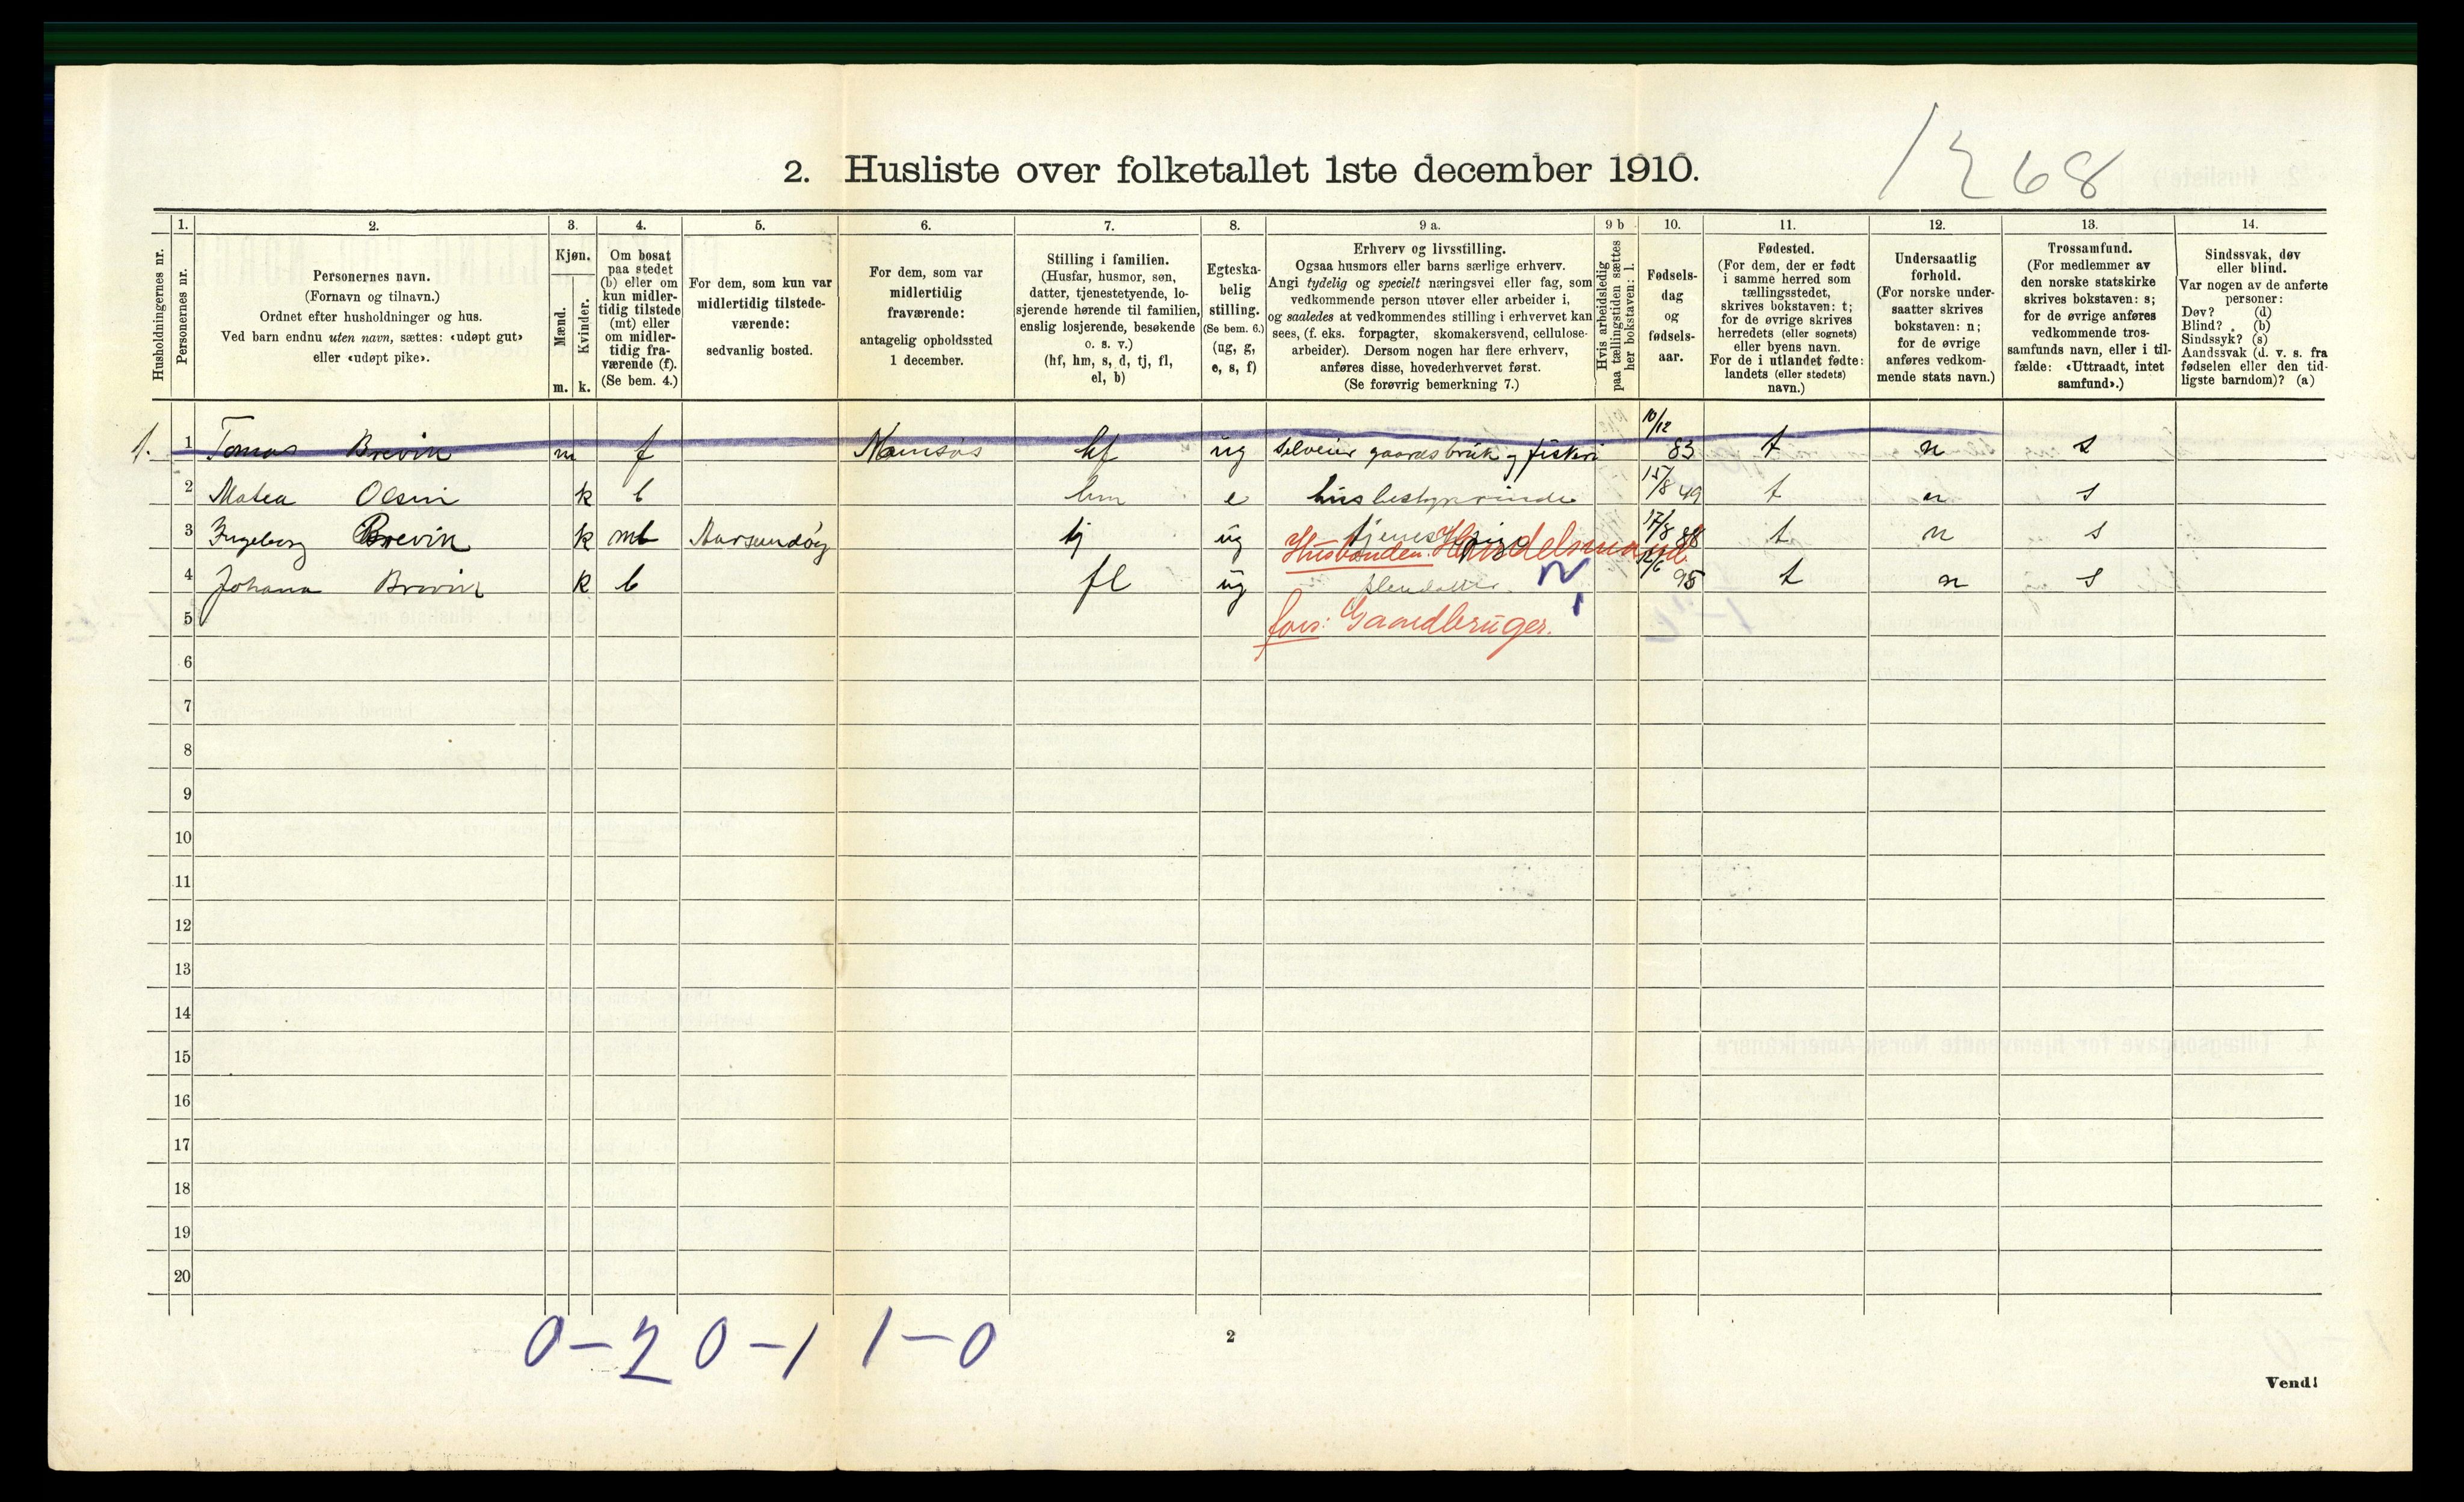 1268
2. Husliste over folketallet 1ste december 1910.
Husholdningernes nr.
1.
Personernes nr.
2.
Personernes navn.
(Fornavn og tilnavn.)
Ordnet efter husholdninger og hus.
Ved barn endnu uten navn, sættes: «udøpt gut»
eller «udøpt pike».
3.
Kjøn.
Mænd.
Kvinder.
m. k.
4.
Om bosat
paa stedet
(b) eller om
kun midler-
tidig tilstede
(mt) eller
om midler-
tidig fra-
værende (f).
(Se bem. 4.)
5.
For dem, som kun var
midlertidig tilstede-
værende:
sedvanlig bosted.
6.
For dem, som var
midlertidig
fraværende:
antagelig opholdssted
1 december.
7.
Stilling i familien.
(Husfar, husmor, søn,
datter, tjenestetyende, lo-
sjerende hørende til familien,
enslig losjerende, besøkende
o. s. v.)
(hf, hm, s, d, tj, fl,
el, b)
8.
Egteska-
belig
stilling.
(Se bem. 6.)
(ug, g,
e, s, f)
9 a.
Erhverv og livsstilling.
Ogsaa husmors eller barns særlige erhverv.
Angi tydelig og specielt næringsvei eller fag, som
vedkommende person utøver eller arbeider i,
og saaledes at vedkommendes stilling i erhvervet kan
sees, (f. eks. forpagter, skomakersvend, cellulose-
arbeider). Dersom nogen har flere erhverv,
anføres disse, hovederhvervet først.
(Se forøvrig bemerkning 7.)
9 b
Hvis arbeidsledig
paa tællingstiden sættes
her bokstaven: l.
10.
Fødsels-
dag
og
fødsels-
aar.
11.
Fødested.
(For dem, der er født
i samme herred som
tællingsstedet,
skrives bokstaven: t;
for de øvrige skrives
herredets (eller sognets)
eller byens navn.
For de i utlandet fødte:
landets (eller stedets)
navn.)
12.
Undersaatlig
forhold.
(For norske under-
saatter skrives
bokstaven: n;
for de øvrige
anføres vedkom-
mende stats navn.)
13.
Trossamfund.
(For medlemmer av
den norske statskirke
skrives bokstaven: s;
for de øvrige anføres
vedkommende tros-
samfunds navn, eller i til-
fælde: «Uttraadt, intet
samfund».)
14.
Sindssvak, døv
eller blind.
Var nogen av de anførte
personer:
Døv? (d)
Blind? (b)
Sindssyk? (s)
Aandssvak (d. v. s. fra
fødselen eller den tid-
ligste barndom)? (a)
1. 1 Tomas Brevik m f Namsos hf ug selveier gaardsbruk og fiskeri 10/12 83 t n s
2 Matea Olsen k b hm e husbestyrerinde 15/8 49 t n s
3 Ingeborg Brevik k mt Aarsundøy tj ug tjenestepige 17/8 t n s
Husbonden: Handelsmand
4 Johana Brevik k b fl ug 95 t n s
5 fors: Gaardbruger.
6
7
8
9
10
11
12
13
14
15
16
17
18
19
20
0-2 0-1 1-0
2
Vend!